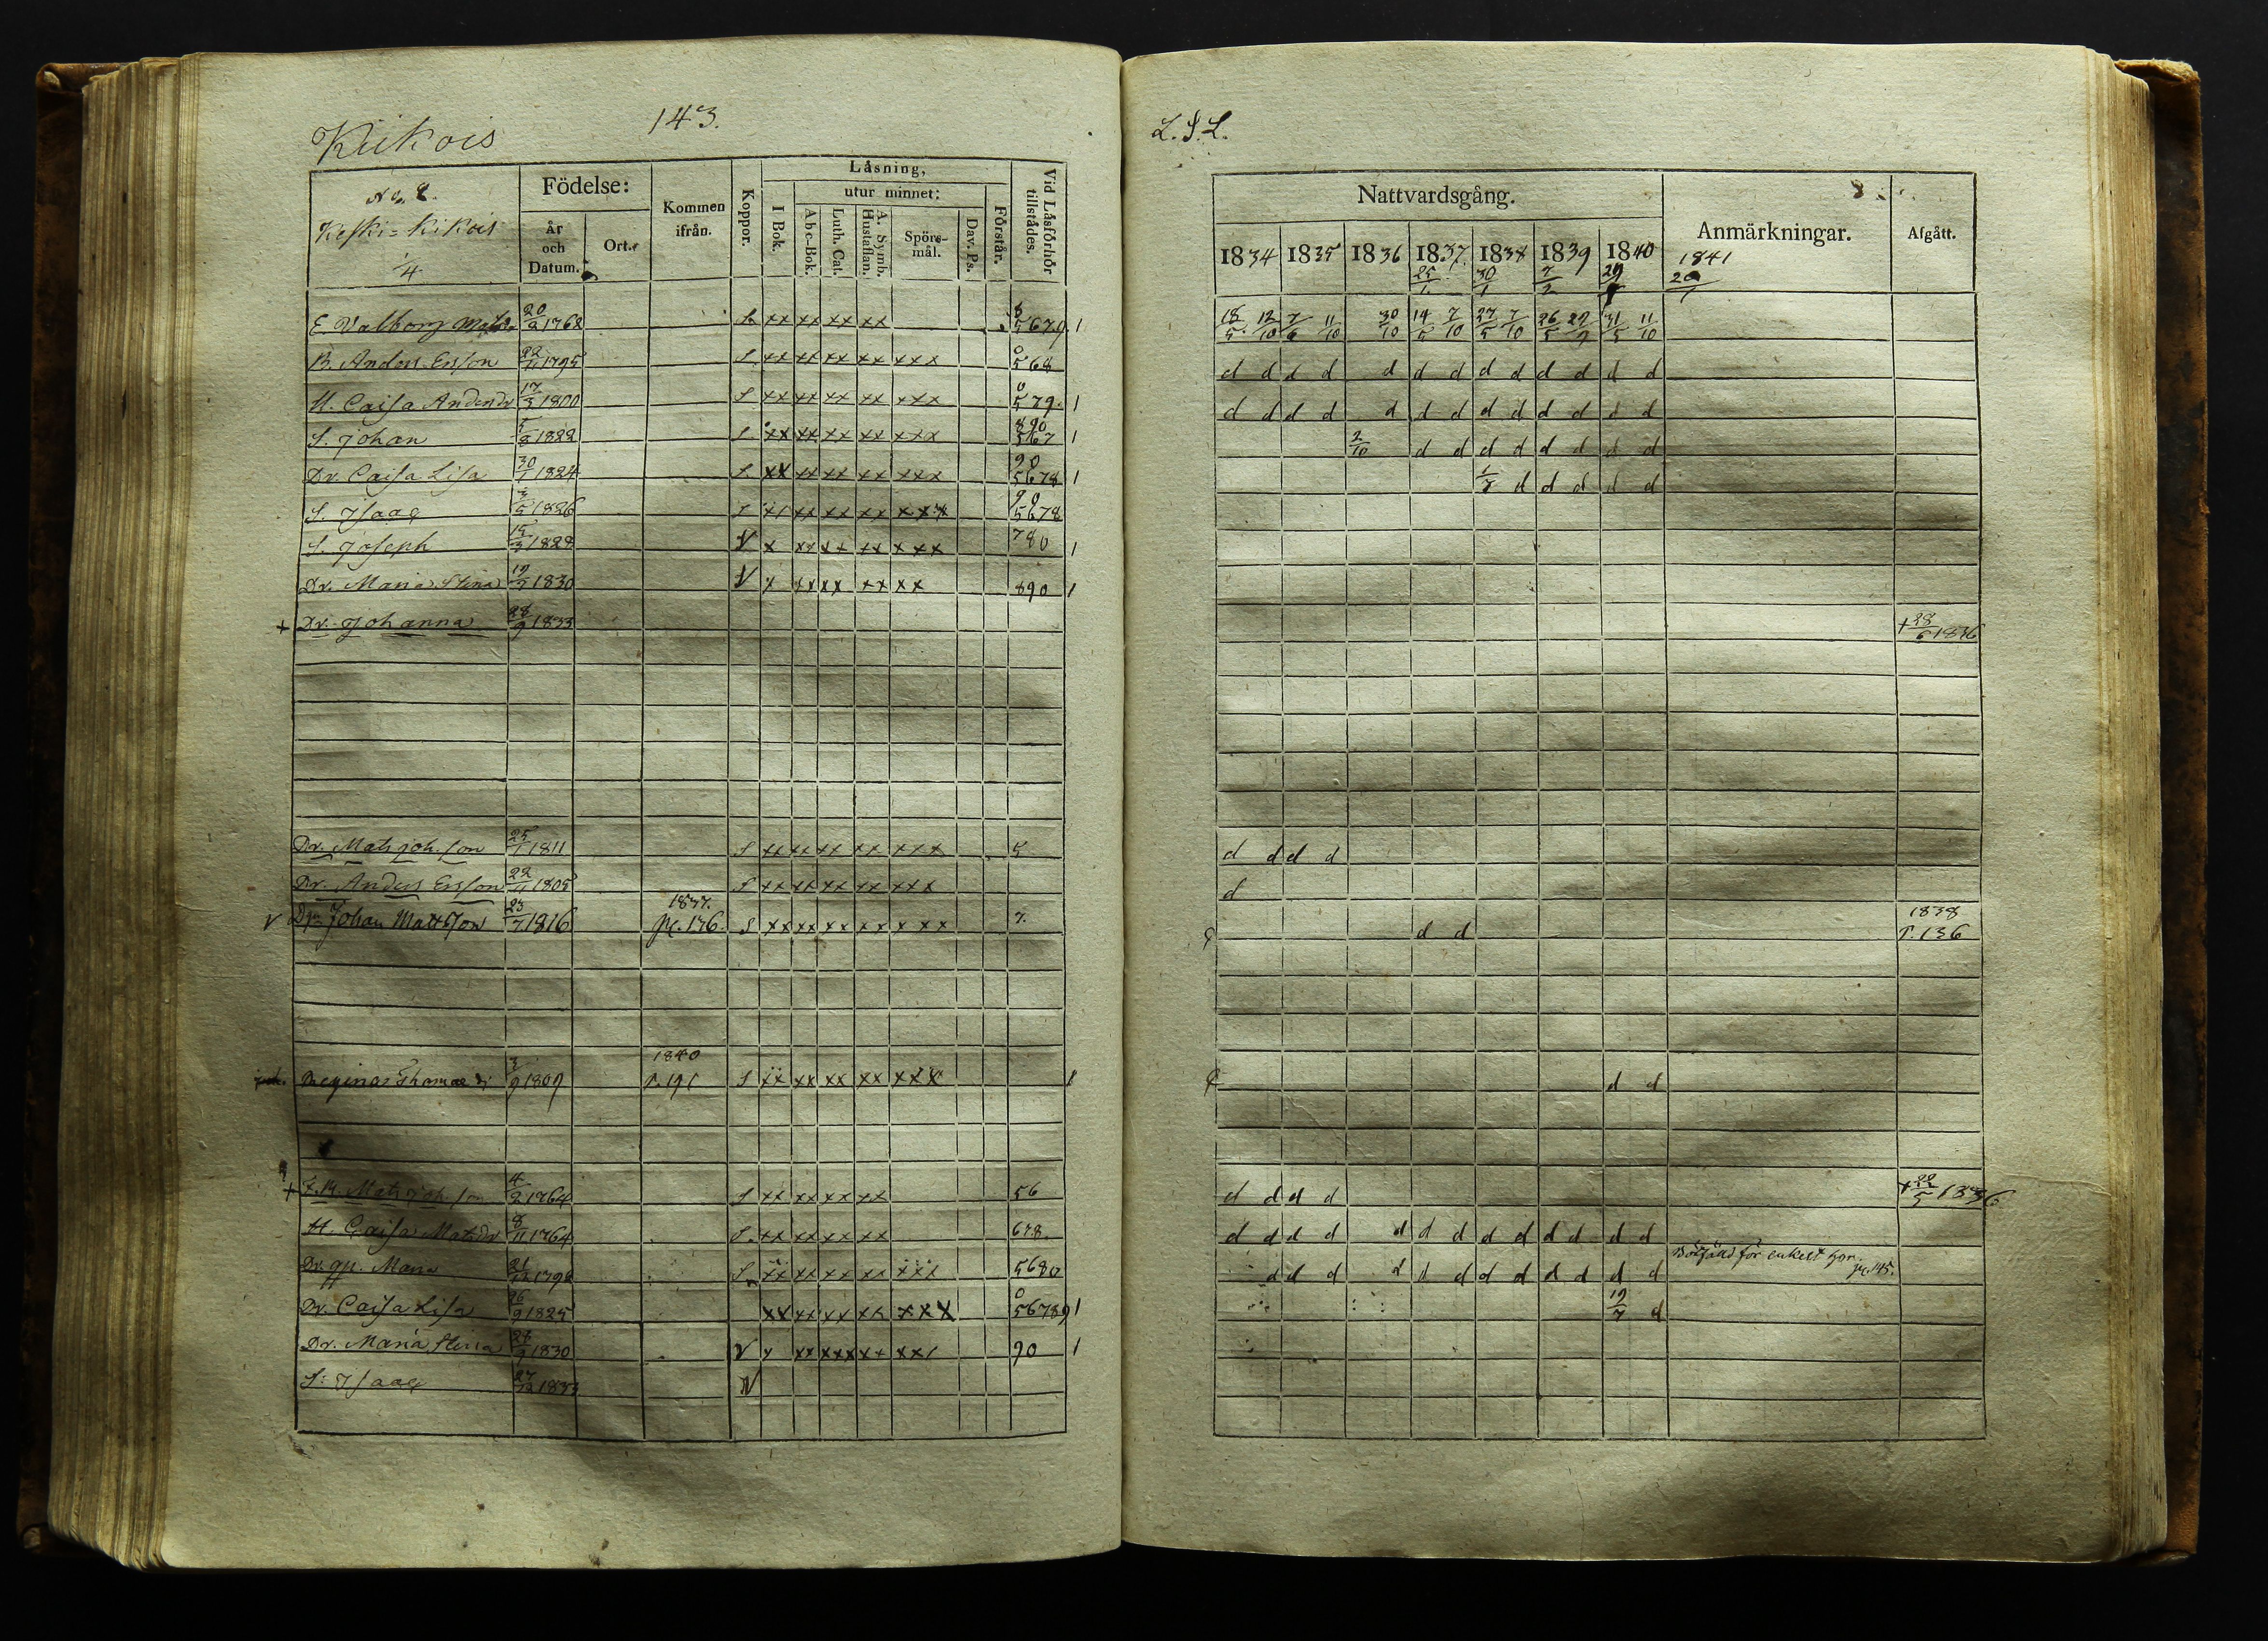 Kiikois
143.
No. 8.
Keski-Kikois
1/4
Födelse:
År och Datum.
Ort.
Kommen ifrån.
Koppor.
Låsning,
I Bok.
utur minnet:
Abc-Bok.
Luth. Cat.
A. Symb. Hustaflan.
Spörs-mål.
Dav. Ps.
Förstår.
Vid Låsförhör tillstådes.
E. Valborg Mats 20/2 1768 S. xx xx xx xx 5679. 1
B. Anders Ersson 22/11 1795 S xx xx xx xx xxx 0 568
H. Caisa Andersdr 17/3 1800 S xx xx xx xx xxx 0 579. 1
S. Johan 5/8 1822 S. xx xx xx xx xxx 890 567 1
Dr. Caisa Lisa 30/1 1824 S. xx xx xx xx xxx 90 5678 1
S. Isaac 3/5 1826 xx xx xx xx xxx 90 5678
S. Joseph 15/3 1828 V x xx xx xx xxx 780 1
Dr. Maria Stina 19/2 1830 V x xx xx xx xx 890 1
+ Dr. Johanna 28/9 1833
Dr. Mats Joh. son 25/1 1811 S xx xx xx xx xxx 5
Dr. Anders Ersson 22/11 1805 S xx xx xx xx xxx
V Dr. Johan Mattsson 23/7 1816 1837. pg. 136. S xx xx xx xx xxx 7.
Regina Thomae dr 3/9 1809 1840 P. 191 S xx xx xx xx xxx 1
+ Mats Joh. son 4/2 1764 S xx xx xx xx 56
H. Caisa Matsdr 8/11 1764 S. xx xx xx xx 678.
Dr. qp. Maria 21/12 1796 S xx xx xx xx xxx 5680
Dr. Caisa Lisa 26/9 1825 xx xx xx xx xxx 0 56789 1
Dr. Maria Stina 28/9 1830 V x xx xx xx xx1 90 1
S: Isaac 27/12 1833 V
L. S. L.
Nattvardsgång.
Anmärkningar.
Afgått.
1834 1835 1836 1837. 1838 1839 1840 1841
25/1 30/1 7/2 29/1 20/1
18/5. 12/10 7/6 11/10 30/10 14/5 7/10 27/5 7/10 26/5 29/9 31/5 11/10
d d d d d d d d d d d d d
d d d d d d d d d d d d d
2/10 d d d d d d d d
1/7 d d d d d
+ 28/6 1836
d d d d
d
d d 1838 P. 136
d d
d d d d + 22/5 1836
d d d d d d d d d d d d d
d d d d d d d d d d d d Botfälld för enkelt hor. pg. 145.
19/7 d